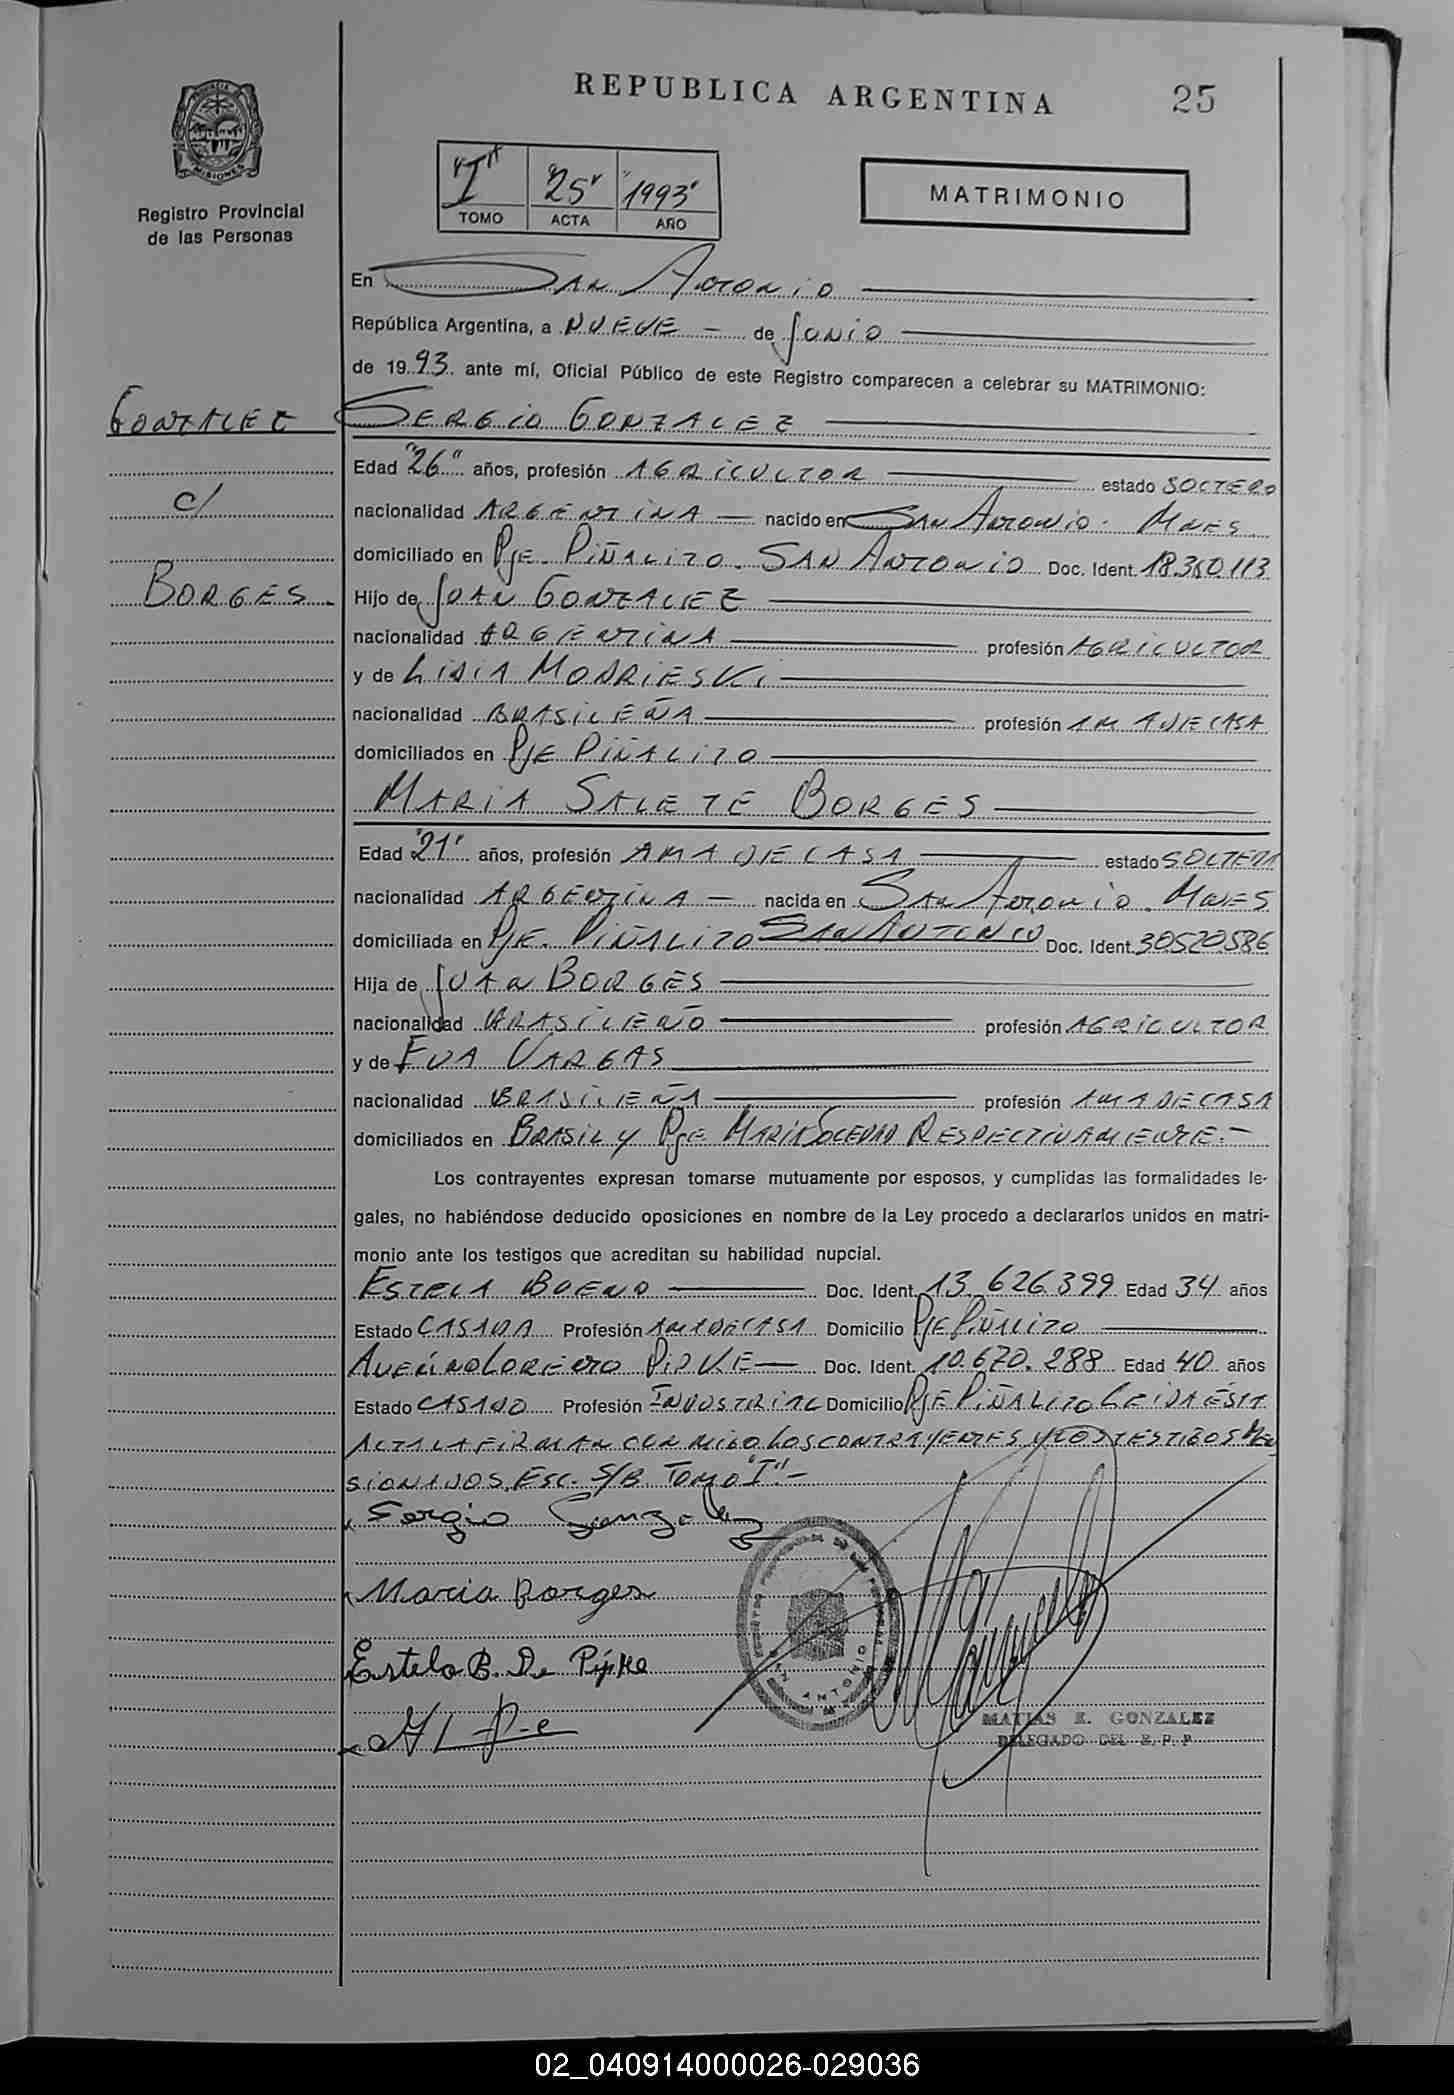 REPUBLICA ARGENTINA
25
PROVINCIA DE
MISIONES
Registro Provincial
de las Personas
"I" "25" "1993"
TOMO ACTA AÑO
MATRIMONIO
En SAN ANTONIO
República Argentina, a NUEVE de JUNIO
de 1993 ante mí, Oficial Público de este Registro comparecen a celebrar su MATRIMONIO:
GONZALEZ
c/
BORGES
SERGIO GONZALEZ
Edad "26" años, profesión AGRICULTOR estado SOLTERO
nacionalidad ARGENTINA nacido en SAN ANTONIO. MNES
domiciliado en PJE. PIÑALITO. SAN ANTONIO Doc. Ident. 18.360.113
Hijo de JUAN GONZALEZ
nacionalidad ARGENTINA profesión AGRICULTOR
y de LIDIA MODRIESKI
nacionalidad BRASILEÑA profesión AMA DE CASA
domiciliados en PJE PIÑALITO
MARIA SALETE BORGES
Edad "21" años, profesión AMA DE CASA estado SOLTERA
nacionalidad ARGENTINA nacida en SAN ANTONIO. MNES
domiciliada en PJE. PIÑALITO SAN ANTONIO Doc. Ident. 30.520.586
Hija de JUAN BORGES
nacionalidad BRASILEÑO profesión AGRICULTOR
y de EVA VARGAS
nacionalidad BRASILEÑA profesión AMA DE CASA
domiciliados en BRASIL Y PJE. MARIA SOLEDAD RESPECTIVAMENTE.-
Los contrayentes expresan tomarse mutuamente por esposos, y cumplidas las formalidades le-
gales, no habiéndose deducido oposiciones en nombre de la Ley procedo a declararlos unidos en matri-
monio ante los testigos que acreditan su habilidad nupcial.
ESTELA BUENO Doc. Ident. 13.626.399 Edad 34 años
Estado CASADA Profesión AMA DE CASA Domicilio PJE PIÑALITO
LORENZO Doc. Ident. 10.670.288 Edad 40 años
Estado CASADO Profesión INDUSTRIAL Domicilio PJE PIÑALITO LEIDA ESTA
ACTA LA FIRMAN CONMIGO LOS CONTRAYENTES Y LOS TESTIGOS MEN
SIONADOS. ESC. S/B TOMO "I".-
Sergio Gonzalez
Maria Borges
Estela B. De Pijke
REGISTRO PROVINCIAL DE LAS PERSONAS
SAN ANTONIO
MATIAS E. GONZALEZ
DELEGADO DEL R.P.P
02_040914000026-029036